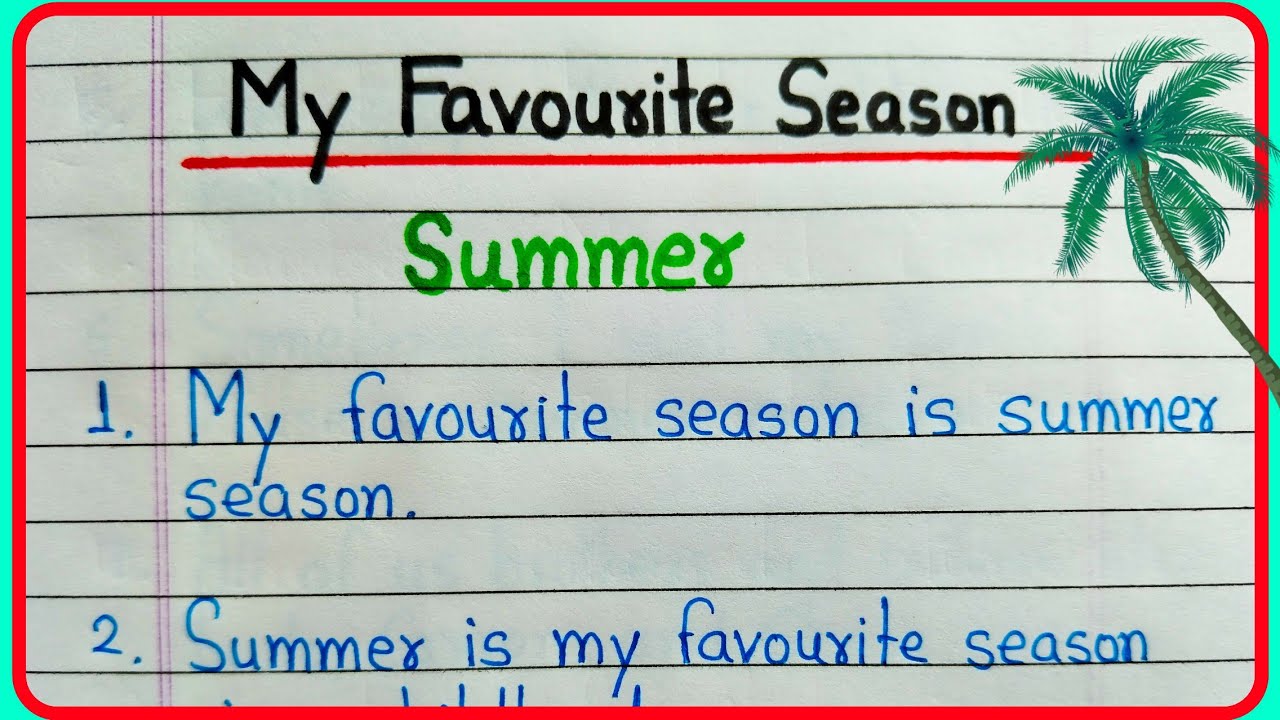 My Favourite Season
Summer
1. My favourite season is summer
season.
2. Summer is my favourite season